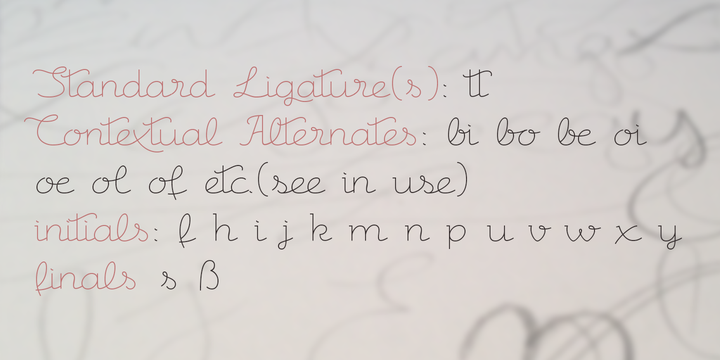 Standard Ligature(s): tt
Contextual Alternates: bi bo be oi
oe ol of etc.(see in use)
initials: f h i j k m n p u v w x y
finals s ß